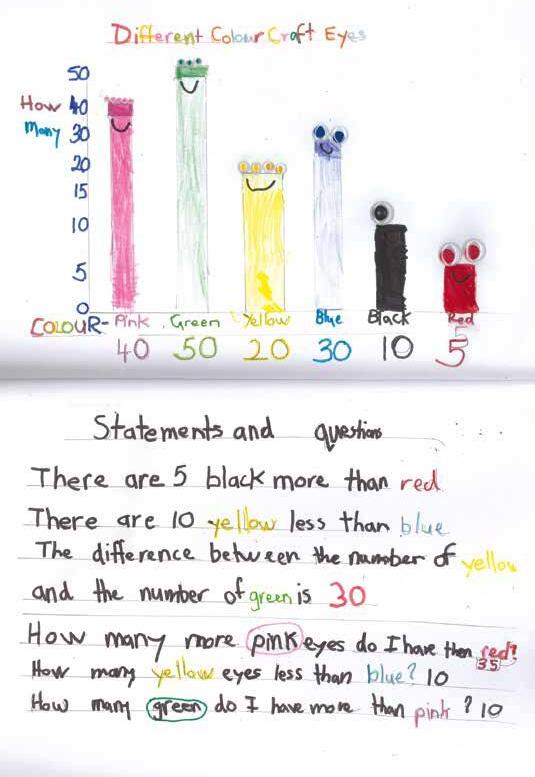 Different Colour Craft Eyes
50
How 40
Many 30
20
15
10
5
0
COLOUR- Pink Green Yellow Blue Black Red
40 50 20 30 10 5
Statements and questions
There are 5 black more than red
There are 10 yellow less than blue
The difference between the number of yellow
and the number of green is 30
How many more pink eyes do I have then red?
35
How many yellow eyes less than blue? 10
How many green do I have more than pink ? 10